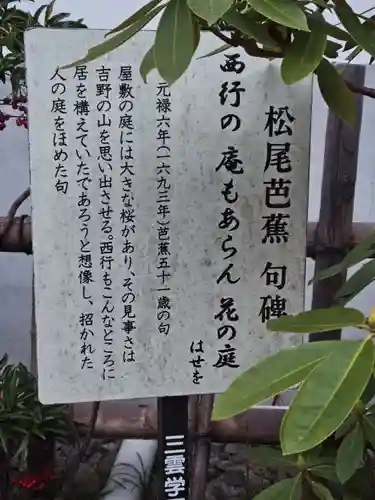 松尾芭蕉 句碑
西行の 庵もあらん 花の庭
はせを
元禄六年(一六九三年)芭蕉五十一歳の句
屋敷の庭には大きな桜があり、その見事さは
吉野の山を思い出させる。西行もこんなところに
庵を構えていたであろうと想像し、招かれた
人の庭をほめた句
三雲学